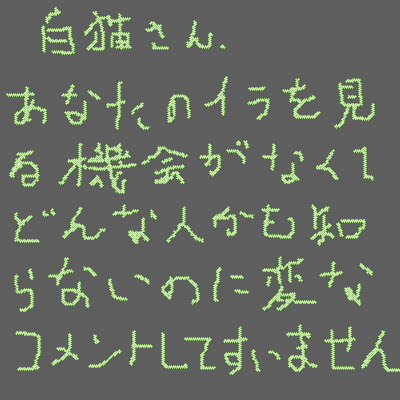 白猫さん.
あなたのイラを見
る機会がなくて
どんな人かも知
らないのに変な
コメントしてすいません